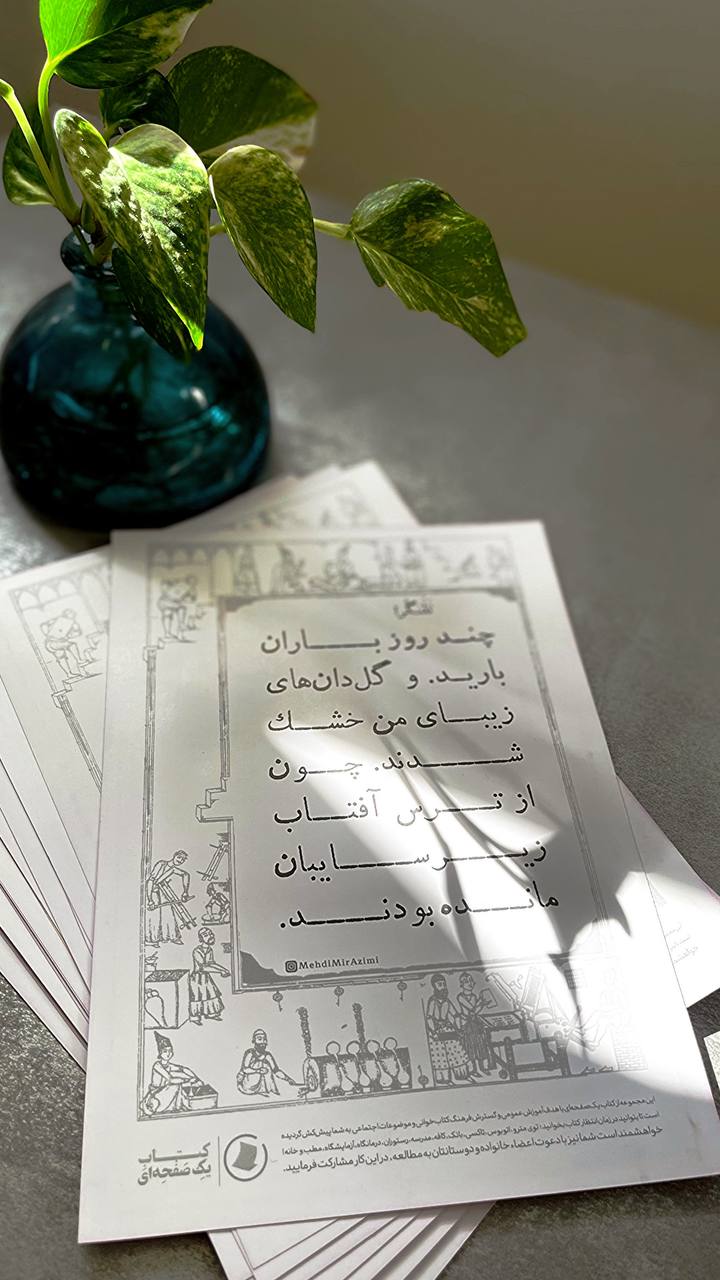 تفکر
چند روز باران
بارید. و گل‌دان‌های
زیبای من خشك
شدند. چون
از ترس آفتاب
زیر سایبان
مانده بودند.
@MehdiMirAzimi
این مجموعه از کتاب یک‌صفحه‌ای با هدف آموزش عمومی و گسترش فرهنگ کتاب‌خوانی و موضوعات اجتماعی به شما پیش‌کش گردیده
است تا بتوانید در زمان انتظار کتاب بخوانید: توی مترو، اتوبوس، تاکسی، بانک، کافه، مدرسه، رستوران، درمانگاه، آزمایشگاه، مطب و خانه!
خواهشمند است شما نیز با دعوت اعضاء خانواده و دوستانتان به مطالعه، در این کار مشارکت فرمایید.
کتاب
یک صفحه‌ای